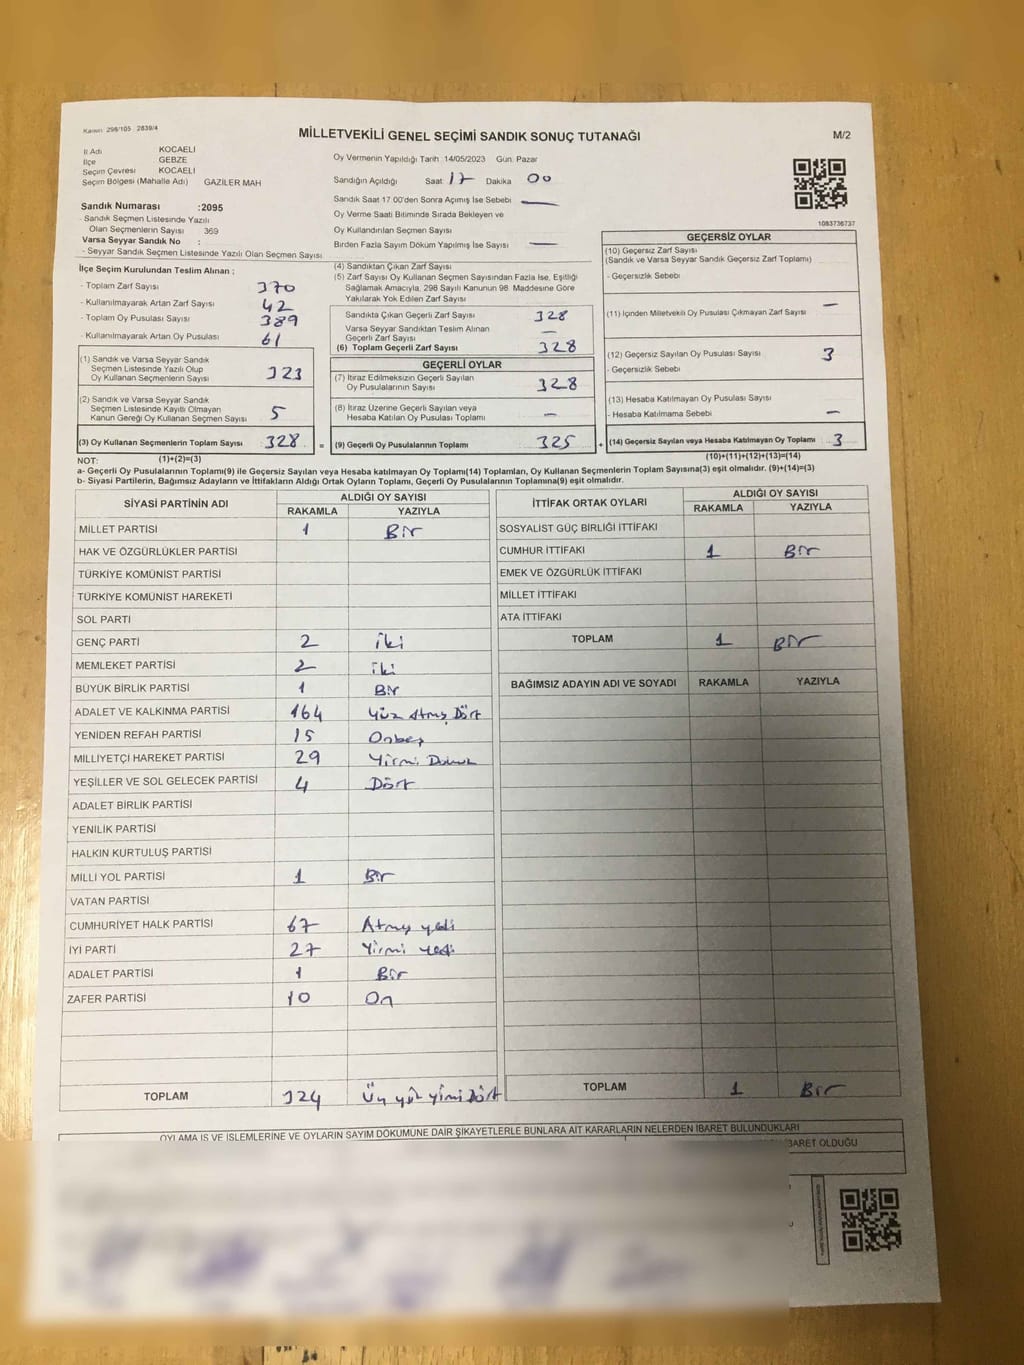 Kanun: 298/105 2839/4
MİLLETVEKİLİ GENEL SEÇİMİ SANDIK SONUÇ TUTANAĞI
M/2
İl Adı KOCAELİ
İlçe GEBZE
Seçim Çevresi KOCAELİ
Seçim Bölgesi (Mahalle Adı) GAZİLER MAH
Sandık Numarası :2095
- Sandık Seçmen Listesinde Yazılı
Olan Seçmenlerin Sayısı 369
Varsa Seyyar Sandık No :
- Seyyar Sandık Seçmen Listesinde Yazılı Olan Seçmen Sayısı
Oy Vermenin Yapıldığı Tarih 14/05/2023 Gün: Pazar
Sandığın Açıldığı Saat 17 Dakika 00
Sandık Saat 17.00'den Sonra Açımış İse Sebebi —
Oy Verme Saati Bitiminde Sırada Bekleyen ve
Oy Kullandırılan Seçmen Sayısı
Birden Fazla Sayım Döküm Yapılmış İse Sayısı —
1083736737
İlçe Seçim Kurulundan Teslim Alınan ;
- Toplam Zarf Sayısı 370
- Kullanılmayarak Artan Zarf Sayısı 42
- Toplam Oy Pusulası Sayısı 389
- Kullanılmayarak Artan Oy Pusulası 61
(1) Sandık ve Varsa Seyyar Sandık
Seçmen Listesinde Yazılı Olup
Oy Kullanan Seçmenlerin Sayısı 323
(2) Sandık ve Varsa Seyyar Sandık
Seçmen Listesinde Kayıtlı Olmayan
Kanun Gereği Oy Kullanan Seçmen Sayısı 5
(3) Oy Kullanan Seçmenlerin Toplam Sayısı 328 =
(4) Sandıktan Çıkan Zarf Sayısı
(5) Zarf Sayısı Oy Kullanan Seçmen Sayısından Fazla İse, Eşitliği
Sağlamak Amacıyla, 298 Sayılı Kanunun 98. Maddesine Göre
Yakılarak Yok Edilen Zarf Sayısı
Sandıkta Çıkan Geçerli Zarf Sayısı 328
Varsa Seyyar Sandıktan Teslim Alınan
Geçerli Zarf Sayısı —
(6) Toplam Geçerli Zarf Sayısı 328
GEÇERLİ OYLAR
(7) İtiraz Edilmeksizin Geçerli Sayılan
Oy Pusulalarının Sayısı 328
(8) İtiraz Üzerine Geçerli Sayılan veya
Hesaba Katılan Oy Pusulası Toplamı —
(9) Geçerli Oy Pusulalarının Toplamı 325 +
GEÇERSİZ OYLAR
(10) Geçersiz Zarf Sayısı
(Sandık ve Varsa Seyyar Sandık Geçersiz Zarf Toplamı)
- Geçersizlik Sebebi
(11) İçinden Milletvekili Oy Pusulası Çıkmayan Zarf Sayısı —
(12) Geçersiz Sayılan Oy Pusulası Sayısı 3
- Geçersizlik Sebebi
(13) Hesaba Katılmayan Oy Pusulası Sayısı
- Hesaba Katılmama Sebebi —
(14) Geçersiz Sayılan veya Hesaba Katılmayan Oy Toplamı 3
NOT: (1)+(2)=(3) (10)+(11)+(12)+(13)=(14)
a- Geçerli Oy Pusulalarının Toplamı(9) ile Geçersiz Sayılan veya Hesaba katılmayan Oy Toplamı(14) Toplamları, Oy Kullanan Seçmenlerin Toplam Sayısına(3) eşit olmalıdır. (9)+(14)=(3)
b- Siyasi Partilerin, Bağımsız Adayların ve İttifakların Aldığı Ortak Oyların Toplamı, Geçerli Oy Pusulalarının Toplamına(9) eşit olmalıdır.
SİYASİ PARTİNİN ADI ALDIĞI OY SAYISI
RAKAMLA YAZIYLA
MİLLET PARTİSİ 1 Bir
HAK VE ÖZGÜRLÜKLER PARTİSİ
TÜRKİYE KOMÜNİST PARTİSİ
TÜRKİYE KOMÜNİST HAREKETİ
SOL PARTİ
GENÇ PARTİ 2 İki
MEMLEKET PARTİSİ 2 İki
BÜYÜK BİRLİK PARTİSİ 1 Bir
ADALET VE KALKINMA PARTİSİ 164 Yüz Atmış Dört
YENİDEN REFAH PARTİSİ 15 Onbeş
MİLLİYETÇİ HAREKET PARTİSİ 29 Yirmi Dokuz
YEŞİLLER VE SOL GELECEK PARTİSİ 4 Dört
ADALET BİRLİK PARTİSİ
YENİLİK PARTİSİ
HALKIN KURTULUŞ PARTİSİ
MİLLİ YOL PARTİSİ 1 Bir
VATAN PARTİSİ
CUMHURİYET HALK PARTİSİ 67 Atmış yedi
İYİ PARTİ 27 Yirmi yedi
ADALET PARTİSİ 1 Bir
ZAFER PARTİSİ 10 On
TOPLAM 324 Üç yüz yirmi Dört
İTTİFAK ORTAK OYLARI ALDIĞI OY SAYISI
RAKAMLA YAZIYLA
SOSYALİST GÜÇ BİRLİĞİ İTTİFAKI
CUMHUR İTTİFAKI 1 Bir
EMEK VE ÖZGÜRLÜK İTTİFAKI
MİLLET İTTİFAKI
ATA İTTİFAKI
TOPLAM 1 Bir
BAĞIMSIZ ADAYIN ADI VE SOYADI RAKAMLA YAZIYLA
TOPLAM 1 Bir
OYLAMA İŞ VE İŞLEMLERİNE VE OYLARIN SAYIM DÖKÜMÜNE DAİR ŞİKAYETLERLE BUNLARA AİT KARARLARIN NELERDEN İBARET BULUNDUKLARI
İBARET OLDUĞU